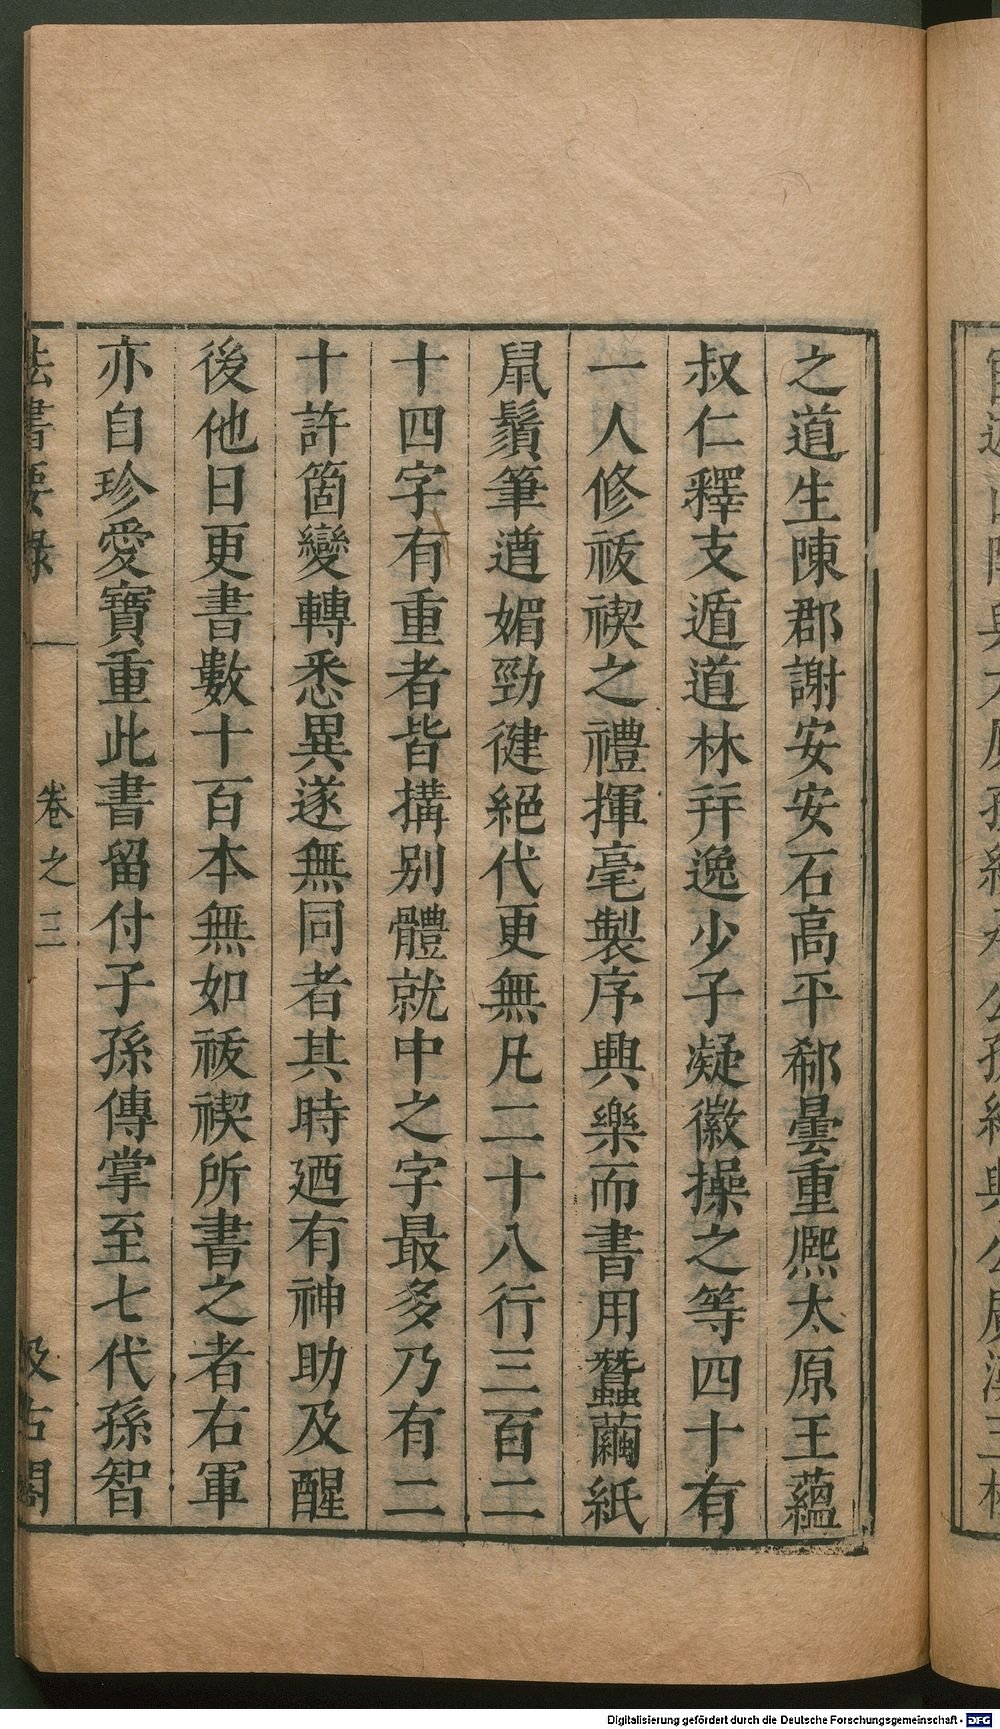 之道生陳郡謝安安石高平郗曇重熈太原王蘊
叔仁釋支遁道林幷逸少子凝徽操之等四十有
一人修祓禊之禮揮毫製序興樂而書用蠶繭紙
鼠鬚筆遒媚勁健絕代更無凡二十八行三百二
十四字有重者皆搆别體就中之字最多乃有二
十許箇變轉悉異遂無同者其時廼有神助及醒
後他日更書數十百本無如祓禊所書之者右軍
亦自珍愛寶重此書留付子孫傳掌至七代孫智
法書要錄 卷之三 汲古閣
Digitalisierung gefördert durch die Deutsche Forschungsgemeinschaft - DFG